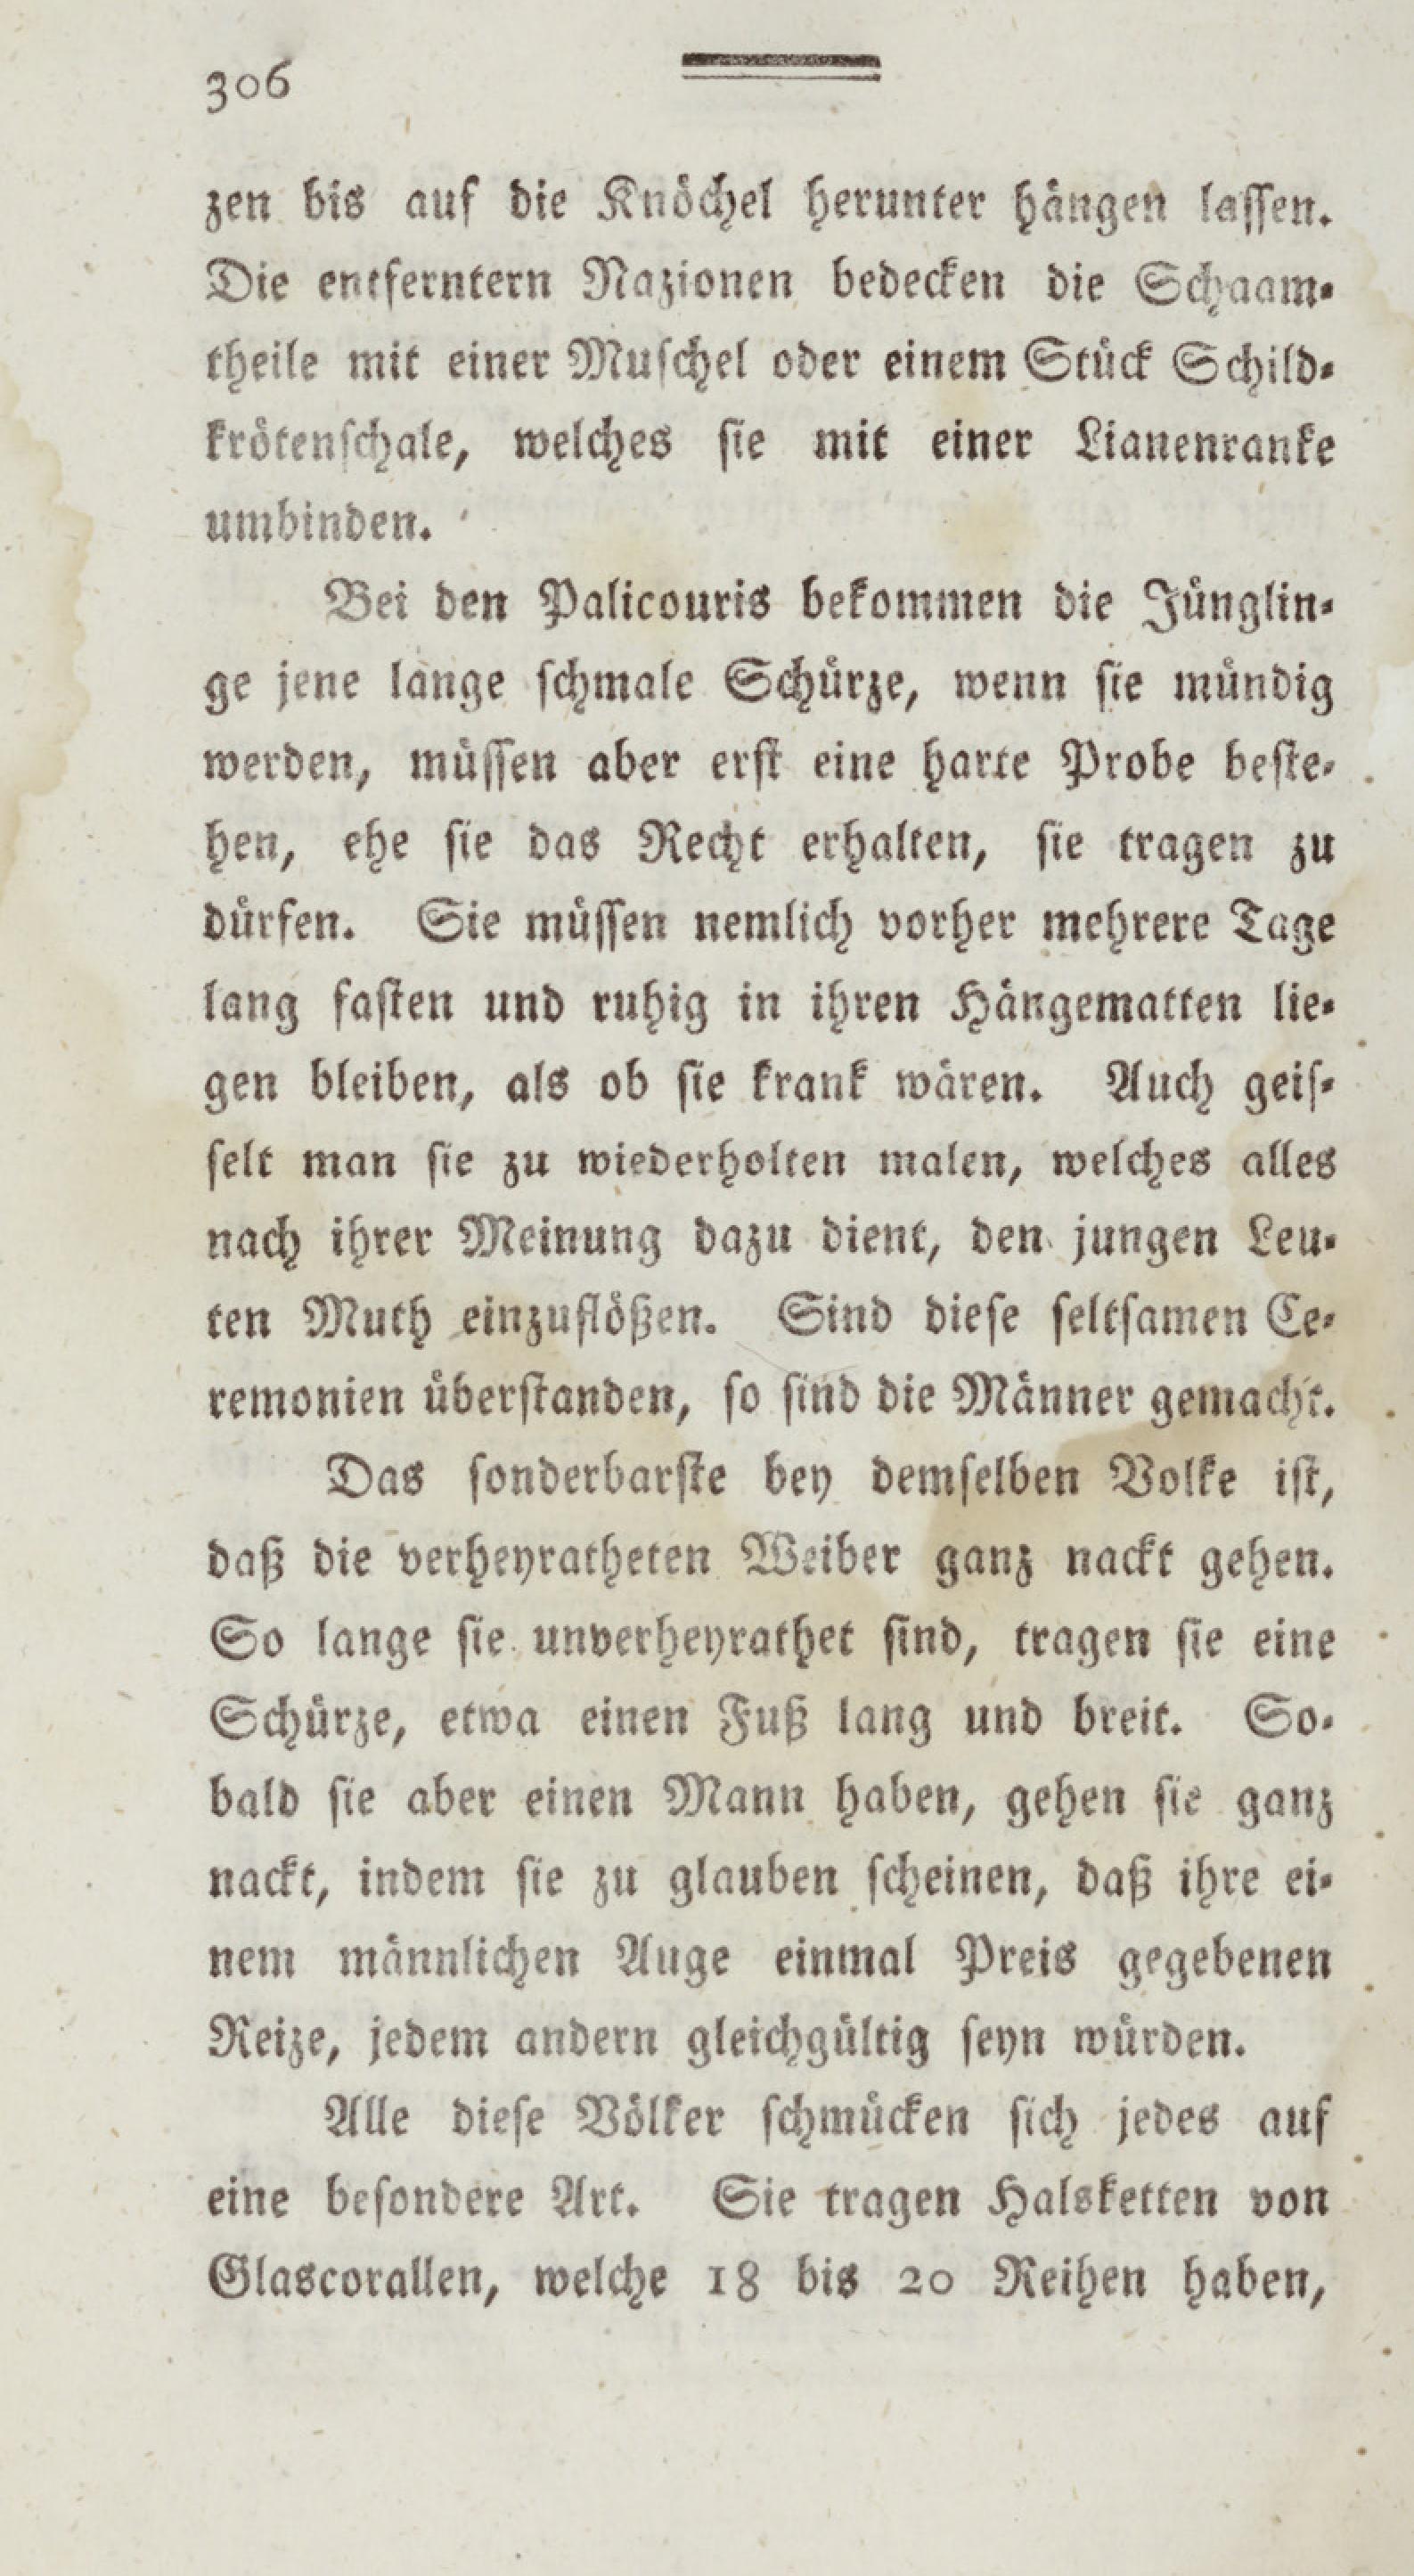 306
zen bis auf die Knöchel herunter hängen lassen.
Die entferntern Nazionen bedecken die Schaam-
theile mit einer Muschel oder einem Stück Schild-
krötenschale, welches sie mit einer Lianenranke
umbinden.
Bei den Palicouris bekommen die Jünglin-
ge jene lange schmale Schürze, wenn sie mündig
werden, müssen aber erst eine harte Probe beste-
hen, ehe sie das Recht erhalten, sie tragen zu
dürfen. Sie müssen nemlich vorher mehrere Tage
lang fasten und ruhig in ihren Hängematten lie-
gen bleiben, als ob sie krank wären. Auch geis-
selt man sie zu wiederholten malen, welches alles
nach ihrer Meinung dazu dient, den jungen Leu-
ten Muth einzuflößen. Sind diese seltsamen Ce-
remonien überstanden, so sind die Männer gemacht.
Das sonderbarste bey demselben Volke ist,
daß die verheyratheten Weiber ganz nackt gehen.
So lange sie unverheyrathet sind, tragen sie eine
Schürze, etwa einen Fuß lang und breit. So-
bald sie aber einen Mann haben, gehen sie ganz
nackt, indem sie zu glauben scheinen, daß ihre ei-
nem männlichen Auge einmal Preis gegebenen
Reize, jedem andern gleichgültig seyn würden.
Alle diese Völker schmücken sich jedes auf
eine besondere Art. Sie tragen Halsketten von
Glascorallen, welche 18 bis 20 Reihen haben,